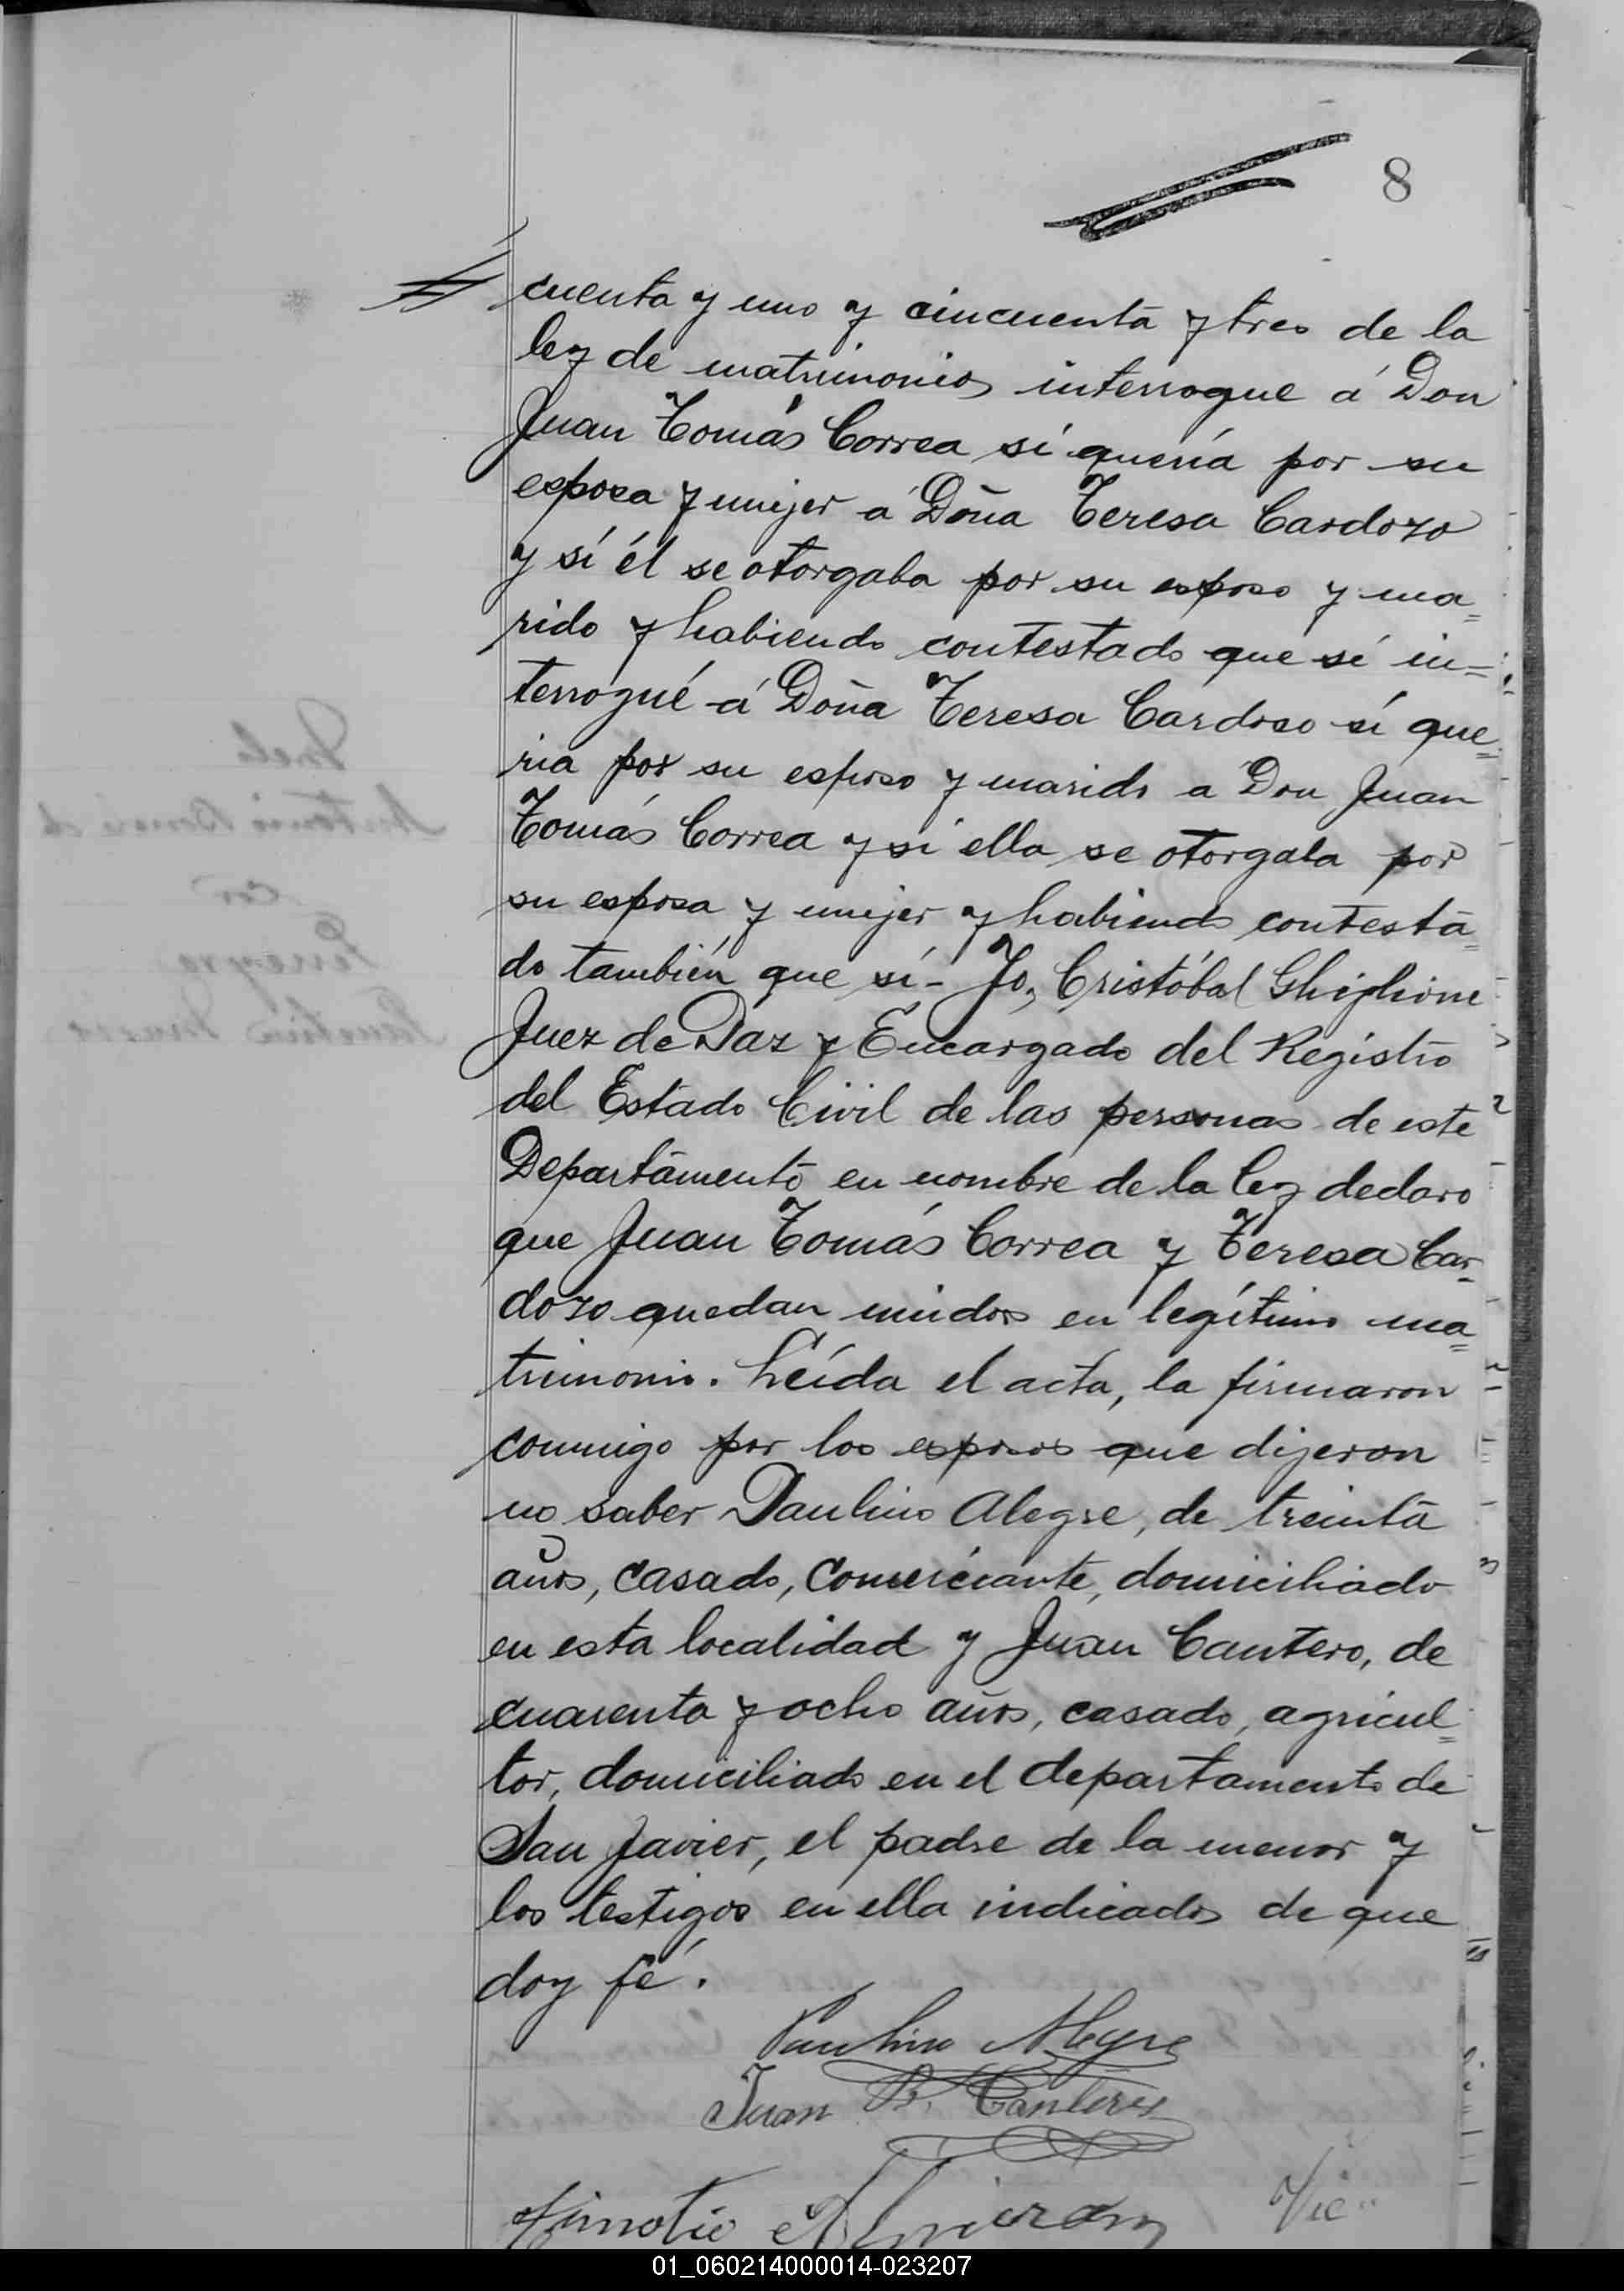 8
cuenta y uno y cincuenta y tres de la
ley de matrimonios interrogue á Don
Juan Tomás Correa sí quería por su
esposa y mujer á Doña Teresa Cardozo
y sí él se otorgaba por su esposo y ma=
rido y habiendo contestado que sí in=
terrogué á Doña Teresa Cardoso sí que=
ria por su esposo y marido a Don Juan
Tomás Correa y sí ella se otorgaba por
su esposa y mujer y habiendo contesta=
do también que sí - Yo, Cristóbal Ghiglione
Juez de Paz y Encargado del Registro
del Estado Civil de las personas de este
Departamento en nombre de la ley declaro
que Juan Tomás Correa y Teresa Car=
dozo quedan unidos en legítimo ma=
trimonio. Leída el acta, la firmaron
conmigo por los esposos que dijeron
no saber Paulino Alegre, de treinta
años, casado, comerciante, domiciliado
en esta localidad y Juan Cantero, de
cuarenta y ocho años, casado, agricul=
tor, domiciliado en el departamento de
San Javier, el padre de la menor y
los testigos en ella indicados de que
doy fé.
Paulino Alegre
Juan B. Cantero
Timoteo
01_060214000014-023207